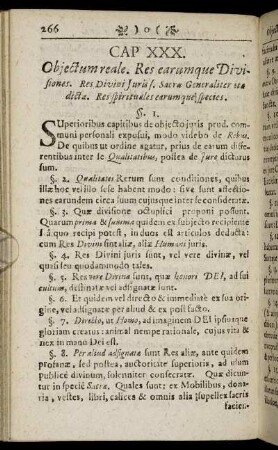 266 ❧ ) o ( ☙
CAP XXX.
Objectum reale. Res earumque Divi-
siones. Res Divini Juris s. Sacræ Generaliter ita
dictæ. Res spirituales earumque species.
§. 1.
SUperioribus capitibus de objecto juris prud. com-
muni personali exposui, modo videbo de Rebus.
De quibus ut ordine agatur, prius de earum diffe-
rentibus inter se Qualitatibus, postea de jure dicturus
sum.
§. 2. Qualitates Rerum sunt conditiones, quibus
illæ hoc vel illo sese habent modo: sive sunt affectiones
earundem circa suum cujusque inter se consideratæ.
§. 3. Quæ divisione octuplici proponi possunt.
Quarum prima & summa quidem ex subjecto recipiente
s. à quo recipi potest, in duos est articulos deducta:
cum Res Divini sint aliæ, aliæ Humani juris.
§. 4. Res Divini juris sunt, vel vere divinæ, vel
quasi seu quodammodo tales.
§. 5. Res vere Divinæ sunt, quæ honori DEI, ad sui
cultum, destinatæ vel adsignatæ sunt.
§. 6. Et quidem vel directo & immediate ex sua ori-
gine, vel adsignatæ per aliud & ex post facto.
§. 7. Directo, ut Homo, ad imaginem DEI ipsusque
gloriam creatus: animal nempe rationale, cujus vita &
nex in manu Dei est.
§. 8. Per aliud adsignatæ sunt Res aliæ, ante quidem
profanæ, sed postea, auctoritate superioris, ad usum
publice divinum, solenniter consecratæ. Quæ dicun-
tur in specie Sacræ. Quales sunt; ex Mobilibus, dona-
ria, vestes, libri, calices & omnis alia supellex sacris
facien-